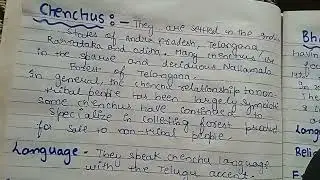 Chenchus :- They are settled in the Indian
states of Andra pradesh, Telangana,
Karnataka and odisha. Many chenchus live
in the sparse and deciduous Nallamala
Forest of Telangana.
In general, the chenchu relationship to non-
tribal people has been largely symbiotic
some chenchus have continued to
specialize in collecting forest product
for sale to non-tribal people.
Language - They speak chenchu language
with the Telugu accent.
Bh
havin
Lang
Relig